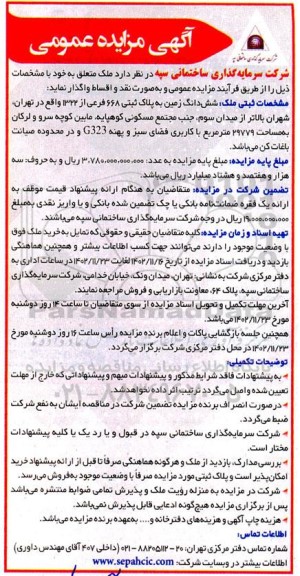 آگهی مزایده عمومی
شرکت سرمایه‌گذاری ساختمانی سپه در نظر دارد ملک متعلق به خود با مشخصات
ذیل را از طریق فرآیند مزایده عمومی و به‌صورت نقد و اقساط واگذار نماید:
مشخصات ثبتی ملک: شش‌دانگ زمین به پلاک ثبتی ۶۶۸ فرعی از ۱۲۲۲ واقع در تهران،
شهران بالاتر از میدان سوم، جنب مجتمع مسکونی کوهپایه، مابین کوچه سرو و ارکان
به‌مساحت ۲۹۷۷۹ مترمربع با کاربری فضای سبز و پهنه G323 و در محدوده صیانت
باغات کن می‌باشد.
مبلغ پایه مزایده: مبلغ پایه مزایده به عدد: ۳.۷۸۰.۰۰۰.۰۰۰.۰۰۰ ریال و به حروف: سه
هزار و هفتصد و هشتاد میلیارد ریال می‌باشد.
تضمین شرکت در مزایده: متقاضیان به هنگام ارائه پیشنهاد قیمت موظف به
ارائه یک فقره ضمانتنامه بانکی یا چک تضمین شده بانکی و یا واریز نقدی به‌مبلغ
ریال در وجه شرکت سرمایه‌گذاری ساختمانی سپه می‌باشند.
تهیه اسناد و زمان مزایده: کلیه متقاضیان حقیقی و حقوقی که تمایل به خرید ملک فوق
با وضعیت موجود را دارند می‌توانند جهت کسب اطلاعات بیشتر و همچنین هماهنگی
بازدید و دریافت اسناد مزایده از تاریخ ۱۴۰۲/۱۱/۱۶ لغایت ۱۴۰۲/۱۱/۲۳ در ساعات اداری به
دفتر مرکزی شرکت به نشانی: تهران، میدان ونک، خیابان خدامی، شرکت سرمایه‌گذاری
ساختمانی سپه، پلاک ۶۴، معاونت بازاریابی و فروش مراجعه نمایند.
آخرین مهلت تکمیل و تحویل اسناد مزایده از سوی متقاضیان تا ساعت ۱۴ روز دوشنبه
مورخ ۱۴۰۲/۱۱/۲۳ می‌باشد.
همچنین جلسه بازگشایی پاکات و اعلام برنده مزایده رأس ساعت ۱۶ روز دوشنبه مورخ
۱۴۰۲/۱۱/۲۳ در محل دفتر مرکزی شرکت برگزار می‌گردد.
توضیحات تکمیلی:
به پیشنهادات فاقد شرایط مذکور و پیشنهادات مبهم و پیشنهاداتی که خارج از مهلت
تعیین شده و اصل می‌گردد ترتیب اثر داده نخواهد شد.
در صورت انصراف برنده مزایده تضمین شرکت در مناقصه ایشان به نفع شرکت
ضبط می‌گردد.
شرکت سرمایه‌گذاری ساختمانی سپه در قبول و یا رد یک یا کلیه پیشنهادات
مختار است.
بررسی مدارک، بازدید از ملک و هرگونه هماهنگی صرفاً تا قبل از ارائه پیشنهاد خرید
امکان‌پذیر است و پلاک ثبتی مورد مزایده صرفاً با وضعیت موجود به‌فروش می‌رسد.
شرکت در مزایده به منزله رؤیت ملک و پذیرش تمامی ضوابط منتشره می‌باشد
پس از برگزاری مزایده هیچ‌گونه ادعایی قابل پذیرش نمی‌باشد.
هزینه چاپ آگهی و هزینه‌های دفترخانه و.... به‌عهده برنده مزایده می‌باشد.
اطلاعات تماس:
شماره تماس دفتر مرکزی تهران: ۲۰ - ۸۸۲۰۵۱۱۲ - ۰۲۱ (داخلی ۴۰۷ آقای مهندس داوری)
اطلاعات بیشتر در وبسایت شرکت: www.sepahcic.com